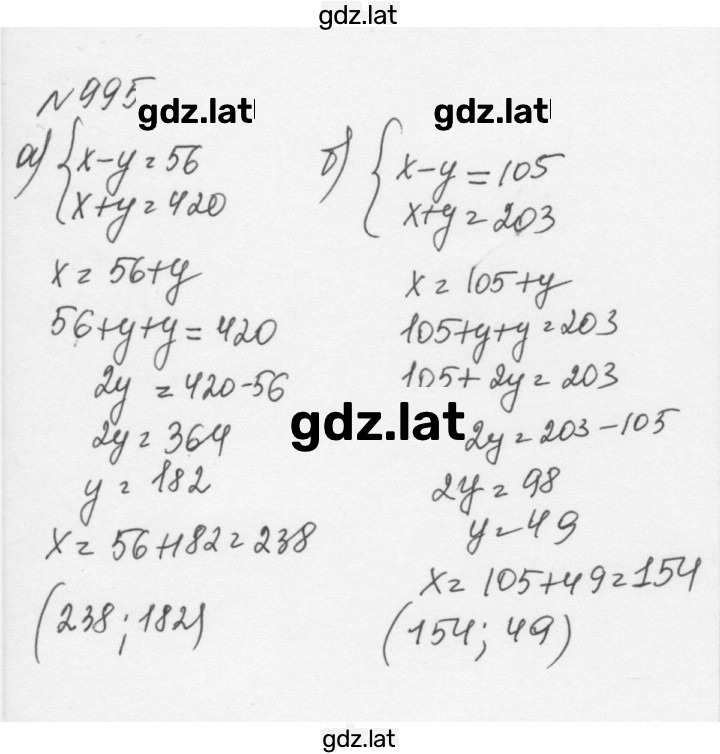 gdz.lat
№995
gdz.lat
gdz.lat
а) { x-y=56
x+y=420
x=56+y
56+y+y=420
2y=420-56
2y=364
y=182
x=56+182=238
(238;182)
б) { x-y=105
x+y=203
x=105+y
105+y+y=203
105+2y=203
gdz.lat
2y=203-105
2y=98
y=49
x=105+49=154
(154; 49)
gdz.lat